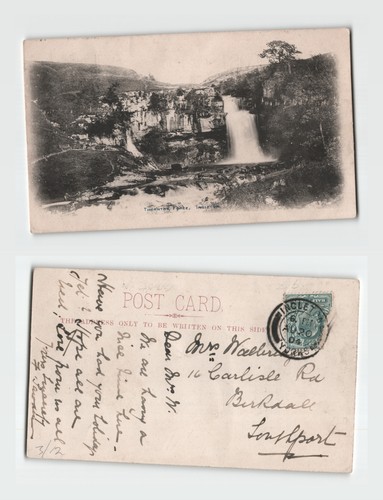 THORNTON FORCE, INGLETON
POST CARD.
THE ADDRESS ONLY TO BE WRITTEN ON THIS SIDE
INGLETON
YORKS
Mrs
16 Carlisle Rd
Birkdale
Southport
Dear Mrs W.
We are having a
nice time here.
Have you had your holidays
yet? Hope all are
well, Love from us all
Yours